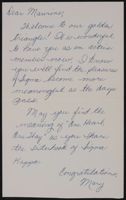 Dear Maurine,
Welcome to our golden
triangle! It is wonderful
to have you as an active
member now. I know
you will find the pleasures
of Sigma become more
meaningful as the days
pass.
May you find the
meaning of "One Heart,
One Way" as you share
the sisterhood of Sigma
Kappa.
Congratulations,
Mary